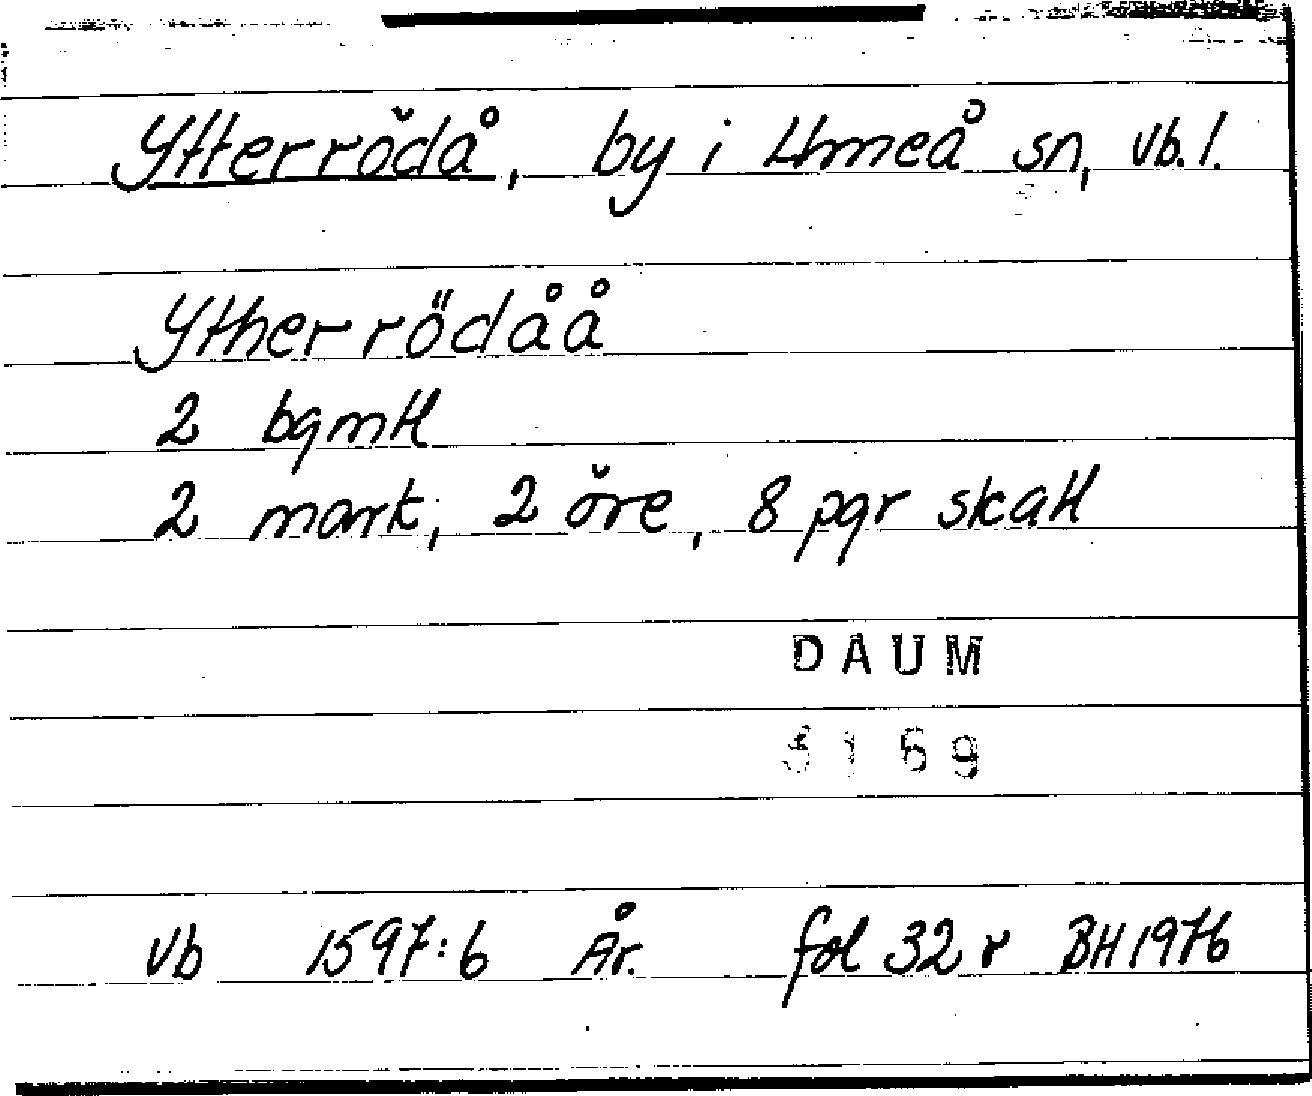 Ytterrödå, by i Umeå sn, Vb. l.
Ytherrödåå
2 bgmtl
2 mark, 2 öre, 8 pgr skatt
DAUM
5169
Vb 1597:6 År. fol 32 r BH 1976